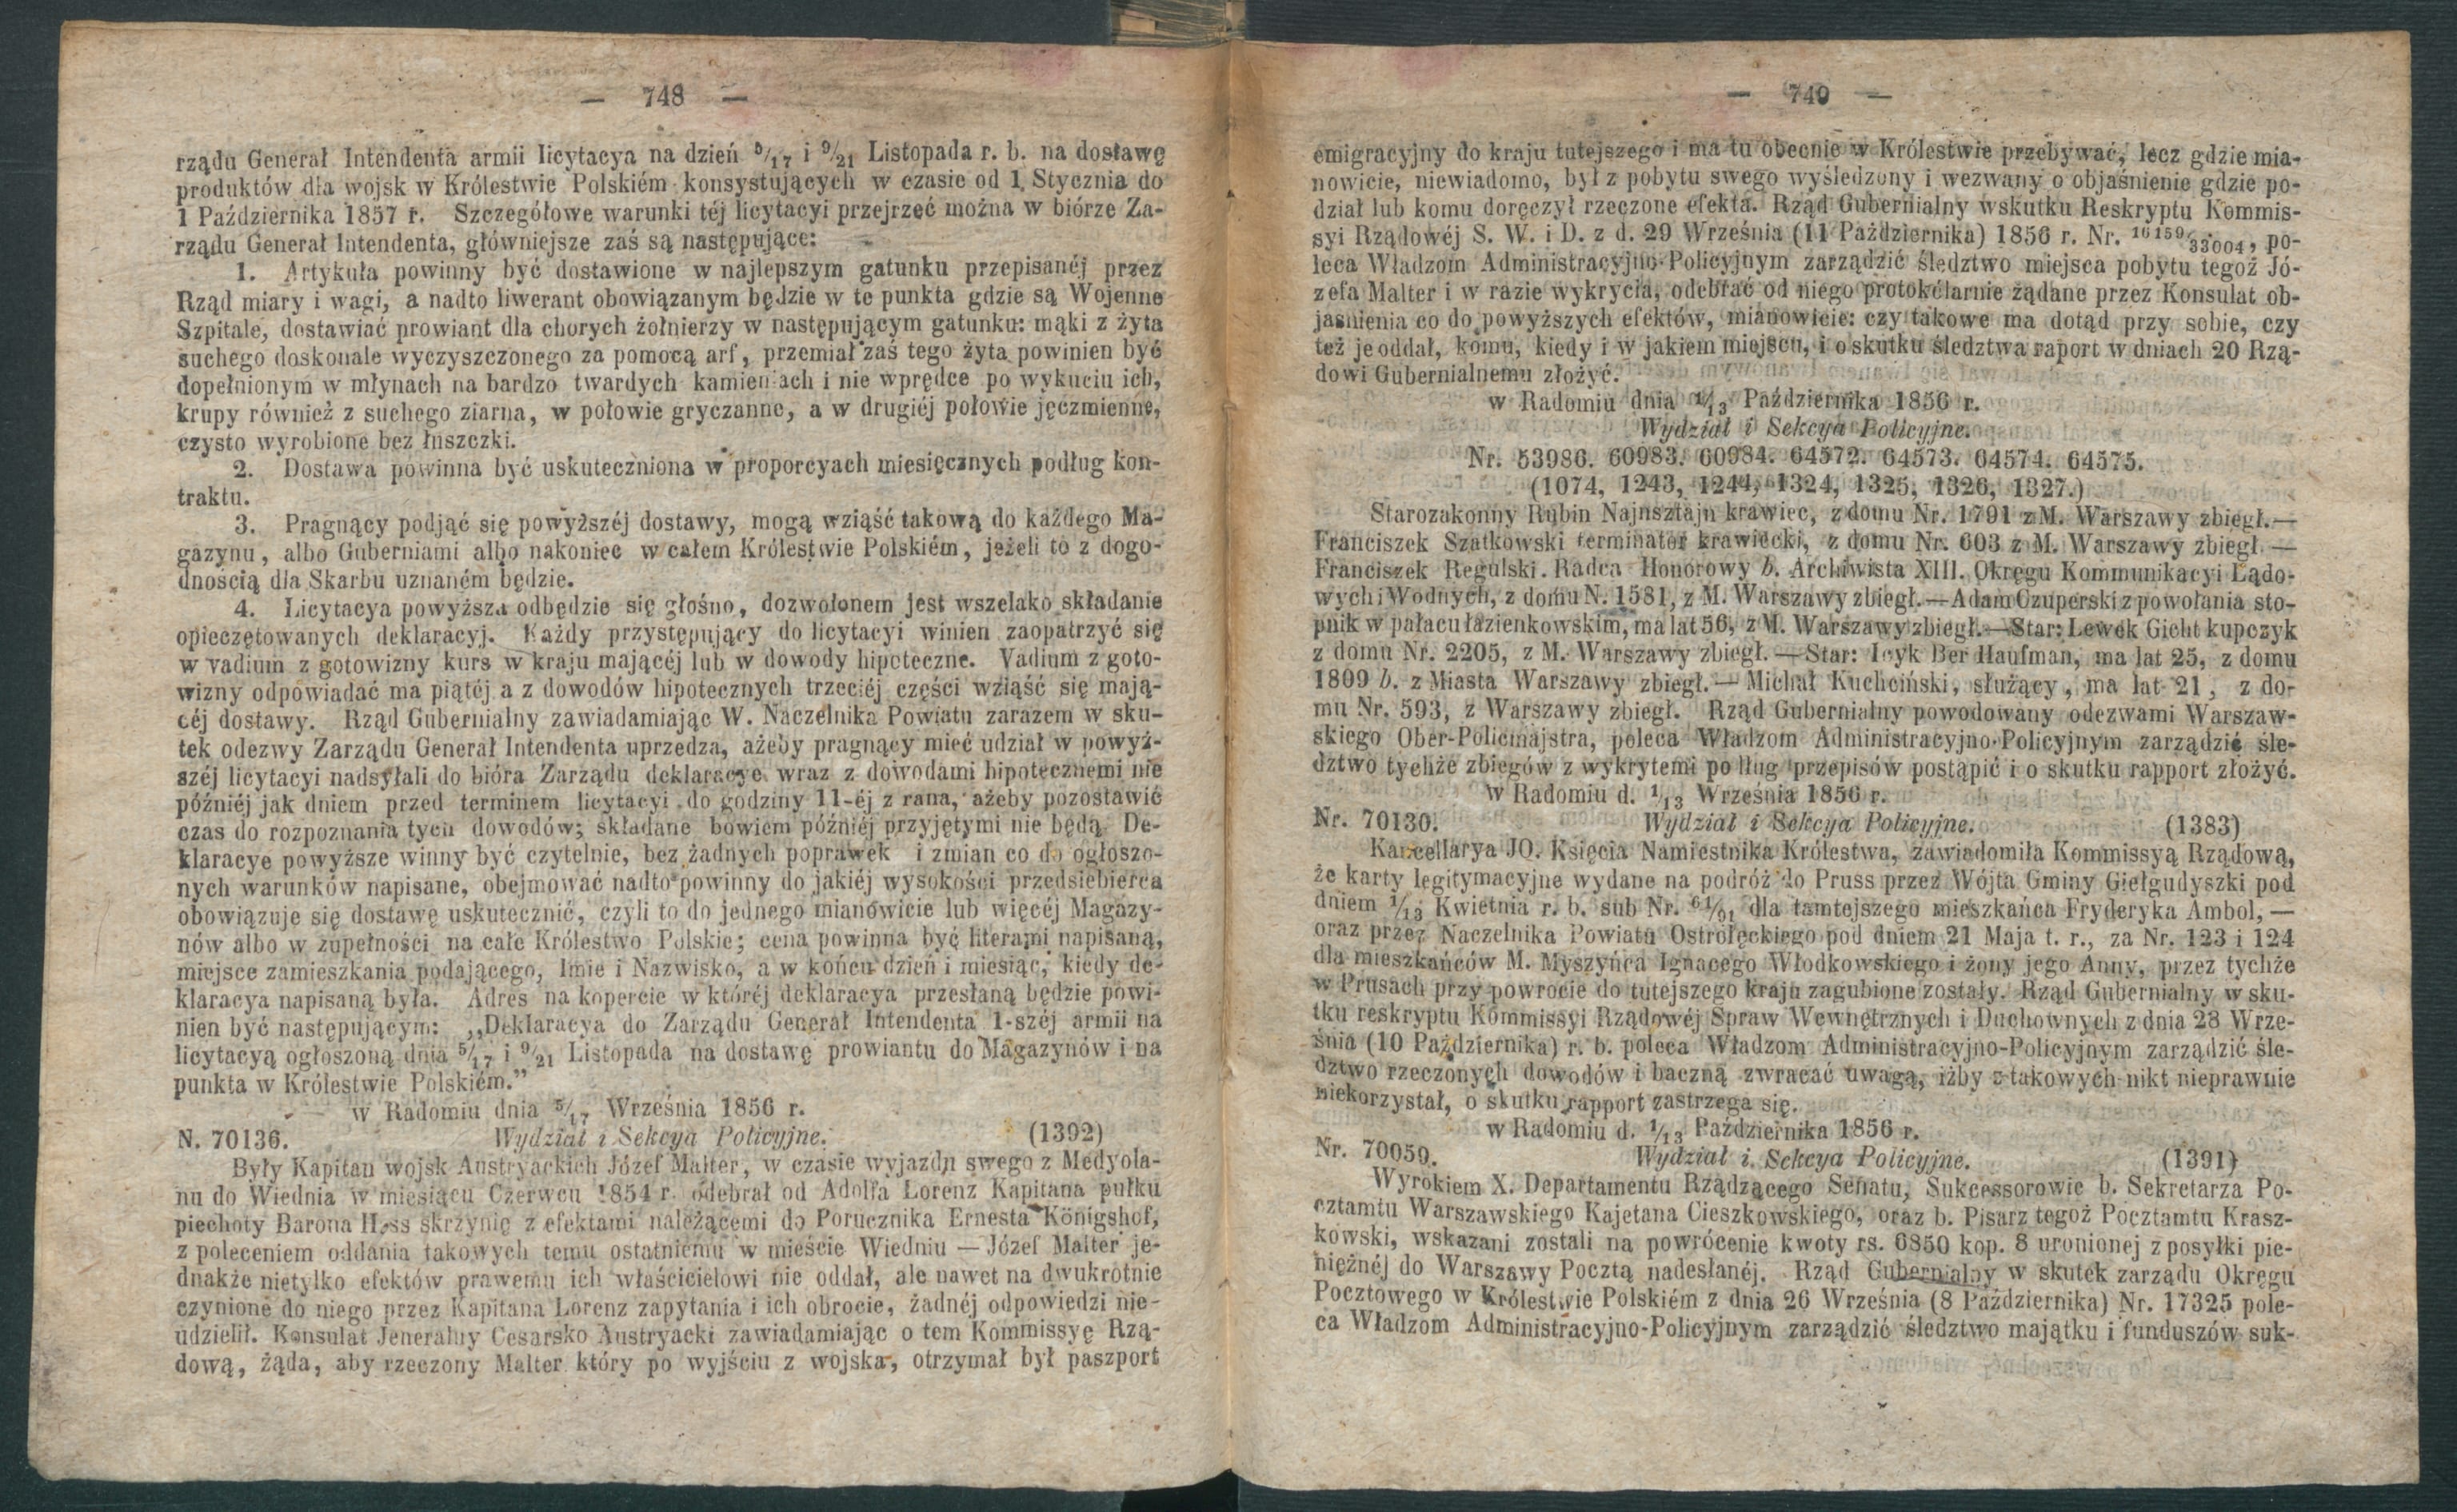 — 748 —
rządu Generał Intendenta armii licytacya na dzień 5/17 i 9/21 Listopada r. b. na dostawę
produktów dla wojsk w Królestwie Polskiém konsystujących w czasie od 1 Stycznia do
1 Października 1857 r. Szczegółowe warunki téj licytacyi przejrzeć można w biórze Za-
rządu Generał Intendenta, główniejsze zaś są następujące:
1. Artykuła powinny być dostawione w najlepszym gatunku przepisanéj przez
Rząd miary i wagi, a nadto liwerant obowiązanym będzie w te punkta gdzie są Wojenne
Szpitale, dostawiać prowiant dla chorych żołnierzy w następującym gatunku: mąki z żyta
suchego doskonale wyczyszczonego za pomocą arf, przemiał zaś tego żyta powinien być
dopełnionym w młynach na bardzo twardych kamieniach i nie wprędce po wykuciu ich,
krupy również z suchego ziarna, w połowie gryczanne, a w drugiéj połowie jęczmienne,
czysto wyrobione bez łuszczki.
2. Dostawa powinna być uskuteczniona w proporcyach miesięcznych podług kon-
traktu.
3. Pragnący podjąć się powyższéj dostawy, mogą wziąść takową do każdego Ma-
gazynu, albo Guberniami albo nakoniec w całem Królestwie Polskiém, jeżeli to z dogo-
dnością dla Skarbu uznaném będzie.
4. Licytacya powyższa odbędzie się głośno, dozwolonem jest wszelako składanie
opieczętowanych deklaracyj. Każdy przystępujący do licytacyi winien zaopatrzyć się
w vadium z gotowizny kurs w kraju mającéj lub w dowody hipoteczne. Vadium z goto-
wizny odpowiadać ma piątéj a z dowodów hipotecznych trzeciéj części wziąść się mają-
céj dostawy. Rząd Gubernialny zawiadamiając W. Naczelnika Powiatu zarazem w sku-
tek odezwy Zarządu Generał Intendenta uprzedza, ażeby pragnący mieć udział w powyż-
széj licytacyi nadsyłali do bióra Zarządu deklaracye wraz z dowodami hipotecznemi nie
późniéj jak dniem przed terminem licytacyi do godziny 11-éj z rana, ażeby pozostawić
czas do rozpoznania tych dowodów; składane bowiem późniéj przyjętymi nie będą. De-
klaracye powyższe winny być czytelnie, bez żadnych poprawek i zmian co do ogłoszo-
nych warunków napisane, obejmować nadto powinny do jakiéj wysokości przedsiebierca
obowiązuje się dostawę uskutecznić, czyli to do jednego mianówicie lub więcéj Magazy-
nów albo w zupełności na całe Królestwo Polskie; cena powinna być literami napisaną,
miejsce zamieszkania podającego, Imie i Nazwisko, a w końcu dzień i miesiąc, kiedy de-
klaracya napisaną była. Adres na kopercie w któréj deklaracya przesłaną będzie powi-
nien być następującym: „Deklaracya do Zarządu Generał Intendenta 1-széj armii na
licytacyą ogłoszoną dnia 5/17 i 9/21 Listopada na dostawę prowiantu do Magazynów i na
punkta w Królestwie Polskiém.”
w Radomiu dnia 5/17 Września 1856 r.
N. 70136. Wydział i Sekcya Policyjne. (1392)
Były Kapitan wojsk Austryackich Józef Malter, w czasie wyjazdu swego z Medyola-
nu do Wiednia w miesiącu Czerwcu 1854 r. odebrał od Adolfa Lorenz Kapitana pułku
piechoty Barona Hess skrzynię z efektami należącemi do Porucznika Ernesta Königshof,
z poleceniem oddania takowych temu ostatniemu w mieście Wiedniu — Józef Malter je-
dnakże nietylko efektów prawemu ich właścicielowi nie oddał, ale nawet na dwukrotnie
czynione do niego przez Kapitana Lorenz zapytania i ich obrocie, żadnéj odpowiedzi nie-
udzielił. Konsulat Jeneralny Cesarsko Austryacki zawiadamiając o tem Kommissyę Rzą-
dową, żąda, aby rzeczony Malter który po wyjściu z wojska, otrzymał był paszport
— 749 —
emigracyjny do kraju tutejszego i ma tu obecnie w Królestwie przebywać, lecz gdzie mia-
nowicie, niewiadomo, był z pobytu swego wyśledzony i wezwany o objaśnienie gdzie po-
dział lub komu doręczył rzeczone efekta. Rząd Gubernialny wskutku Reskryptu Kommis-
syi Rządowéj S. W. i D. z d. 29 Września (11 Października) 1856 r. Nr. 16159/33004, po-
leca Władzom Administracyjno-Policyjnym zarządzić śledztwo miejsca pobytu tegoż Jó-
zefa Malter i w razie wykrycia, odebrać od niego protokólarnie żądane przez Konsulat ob-
jasnienia co do powyższych efektów, mianowicie: czy takowe ma dotąd przy sobie, czy
też je oddał, komu, kiedy i w jakiem miejscu, i o skutku śledztwa raport w dniach 20 Rzą-
dowi Gubernialnemu złożyć.
w Radomiu dnia 1/13 Października 1856 r.
Wydział i Sekcya Policyjne.
Nr. 53986. 60983. 60984. 64572. 64573. 64574. 64575.
(1074, 1243, 1244, 1324, 1325, 1326, 1327.)
Starozakonny Rubin Najnsztajn krawiec, z domu Nr. 1791 z M. Warszawy zbiegł.—
Franciszek Szatkowski terminator krawiecki, z domu Nr. 603 z M. Warszawy zbiegł —
Franciszek Regulski. Radca Honorowy b. Archiwista XIII. Okręgu Kommunikacyi Lądo-
wych i Wodnych, z domu N. 1581, z M. Warszawy zbiegł.—Adam Czuperski z powołania sto-
pnik w pałacu łazienkowskim, ma lat 56, z M. Warszawy zbiegł.—Star: Lewek Gicht kupczyk
z domu Nr. 2205, z M. Warszawy zbiegł. — Star: Icyk Ber Haufman, ma lat 25, z domu
1809 b. z Miasta Warszawy zbiegł.— Michał Kuchciński, służący, ma lat 21, z do-
mu Nr. 593, z Warszawy zbiegł. Rząd Gubernialny powodowany odezwami Warszaw-
skiego Ober-Policmajstra, poleca Władzom Administracyjno-Policyjnym zarządzić śle-
dztwo tychże zbiegów z wykrytemi podług przepisów postąpić i o skutku rapport złożyć.
w Radomiu d. 1/13 Września 1856 r.
Nr. 70130. Wydział i Sekcya Policyjne. (1383)
Kancellarya JO. Księcia Namiestnika Królestwa, zawiadomiła Kommissyą Rządową,
że karty legitymacyjne wydane na podróż do Pruss przez Wójta Gminy Giełgudyszki pod
dniem 1/13 Kwietnia r. b. sub Nr. 61/91 dla tamtejszego mieszkańca Fryderyka Ambol, —
oraz przez Naczelnika Powiatu Ostrołęckiego pod dniem 21 Maja t. r., za Nr. 123 i 124
dla mieszkańców M. Myszyńca Ignacego Włodkowskiego i żony jego Anny, przez tychże
w Prusach przy powrocie do tutejszego kraju zagubione zostały. Rząd Gubernialny w sku-
tku reskryptu Kommissyi Rządowéj Spraw Wewnętrznych i Duchownych z dnia 28 Wrze-
śnia (10 Października) r. b. poleca Władzom Administracyjno-Policyjnym zarządzić śle-
dztwo rzeczonych dowodów i baczną zwracać uwagą, iżby z takowych nikt nieprawnie
niekorzystał, o skutku rapport zastrzega się.
w Radomiu d. 1/13 Października 1856 r.
Nr. 70059. Wydział i Sekcya Policyjne. (1391)
Wyrokiem X. Departamentu Rządzącego Senatu, Sukcessorowie b. Sekretarza Po-
cztamtu Warszawskiego Kajetana Cieszkowskiego, oraz b. Pisarz tegoż Pocztamtu Krasz-
kowski, wskazani zostali na powrócenie kwoty rs. 6850 kop. 8 uronionej z posyłki pie-
niężnéj do Warszawy Pocztą nadesłanéj. Rząd Gubernialny w skutek zarządu Okręgu
Pocztowego w Królestwie Polskiém z dnia 26 Września (8 Października) Nr. 17325 pole-
ca Władzom Administracyjno-Policyjnym zarządzić śledztwo majątku i funduszów suk-